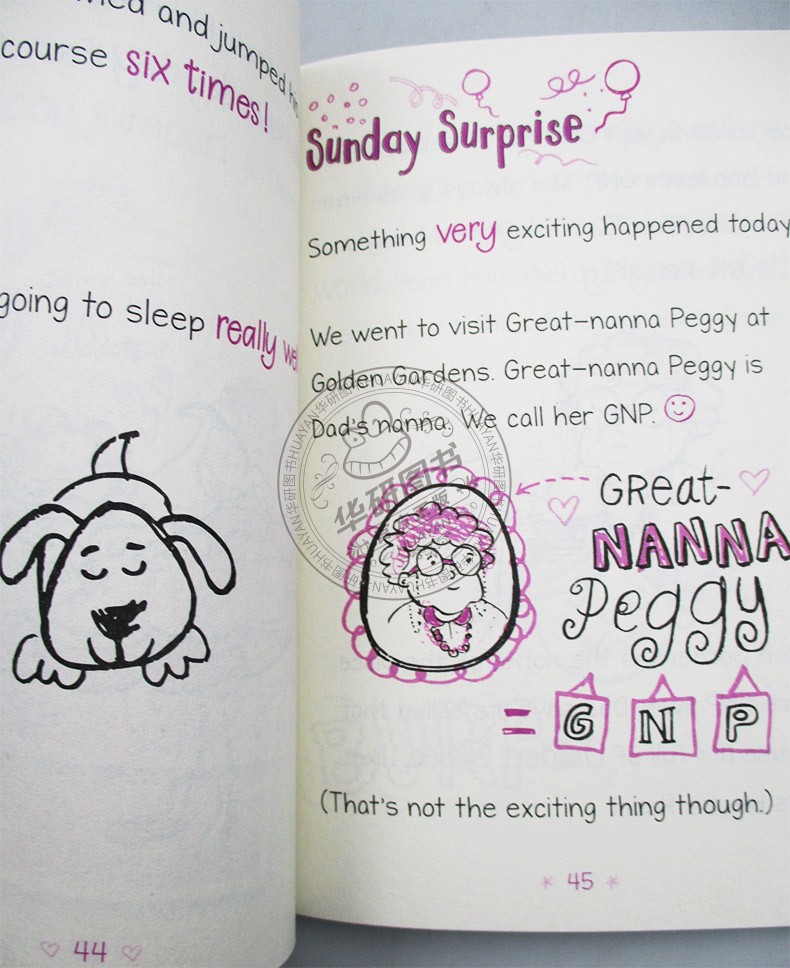 and jumped
course six times!
going to sleep really
44
Sunday Surprise
Something very exciting happened today
We went to visit Great-nanna Peggy at
Golden Gardens. Great-nanna Peggy is
Dad's nanna. We call her GNP.
GReat-
NANNA
Peggy
= G N P
(That's not the exciting thing though.)
45
华研图书HUAYAN华研图书HUAYAN华研图书HUAYAN华研图书
华研图书